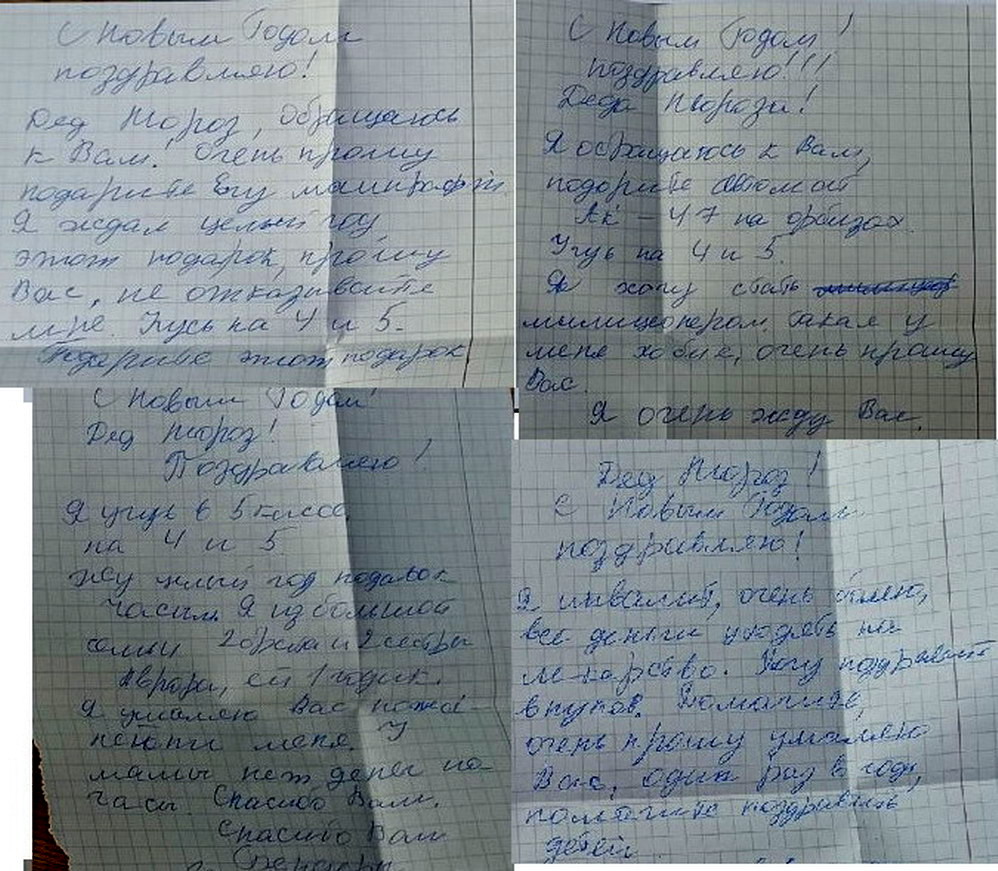 С Новым Годом
поздравляю!
Дед Мороз, Обращаюсь
к Вам! Очень прошу
подарите Егу майнкрафт
Я ждал целый год
этот подарок, прошу
Вас, не отказывайте
мне. Учусь на 4 и 5.
Подарите этот подарок
С Новым Годом!
поздравляю!!!
Деда Мороза!
Я обращаюсь к Вам,
подорите автомат
Ак – 47 на орбизах.
Учусь на 4 и 5.
Я хочу стать
милиционером. такая у
меня хобие, очень прошу
Вас.
Я очень жду Вас.
С Новым Годом!
Дед Мороз!
Поздравляю!
Я учусь в 5 классе
на 4 и 5
жду целый год подарок
часы. Я из большой
семьи 2 брата и 2 сестры
Аврора, ей 1 годик.
Я умоляю Вас
меня. У
мамы нет денег на
часы. Спасибо Вам.
Спасибо Вам
Дед Мороз!
С Новым Годом
поздравляю!
Я инвалит, очень болею,
все деньги уходять на
лекарство. Хочу поздравить
внуков. Помагите,
очень прошу умаляю
Вас, один раз в году,
помагите поздравить
детей